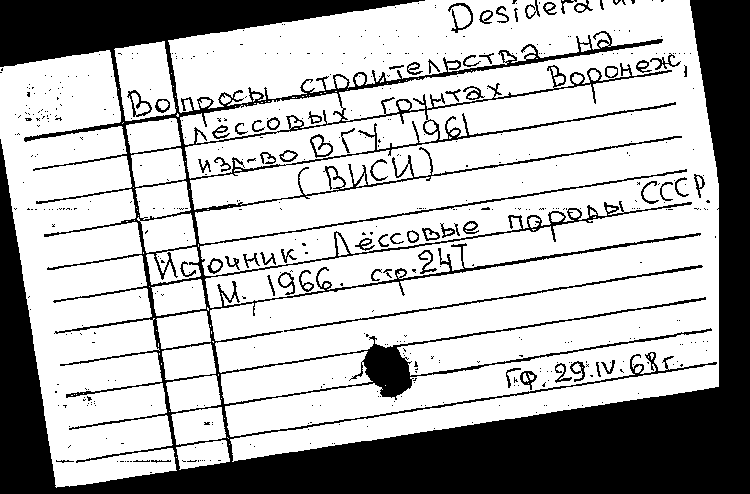 Desiderata
Вопросы строительства на
лёссовых грунтах. Воронеж,
изд-во ВГУ, 1961
(ВИСИ)
Источник: Лёссовые породы СССР.
М., 1966. стр. 247
ГФ. 29.IV.68г.